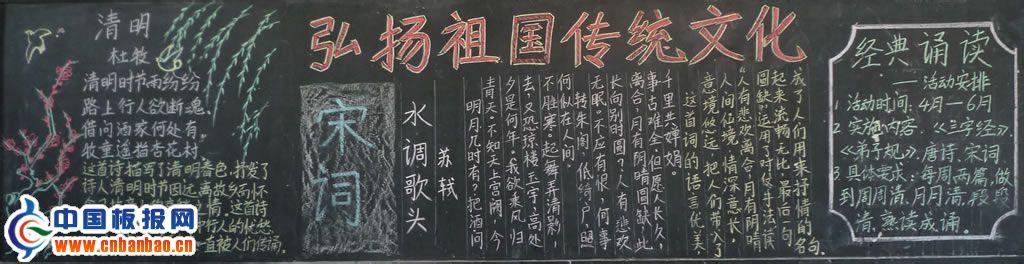 弘扬祖国传统文化
清明
杜牧
清明时节雨纷纷
路上行人欲断魂,
借问酒家何处有,
牧童遥指杏花村
这首诗描写了清明春色,抒发了
诗人清明时节因远离故乡而怀
情。这首诗
行人的忧愁
直被人们传诵。
中国板报网
www.cnbanbao.cn
宋词
水调歌头
苏轼
明月几时有?把酒问
青天。不知天上宫阙,今
夕是何年。我欲乘风归
去,又恐琼楼玉宇,高处
不胜寒。起舞弄清影,
何似在人间。
转朱阁,低绮户,照
无眠。不应有恨,何事
长向别时圆?人有悲欢
离合,月有阴晴圆缺,此
事古难全。但愿人长久,
千里共婵娟。
这首词的语言优美,
意境悠远,把人们带入了
人间仙境,情深意长。
“人有悲欢离合,月有阴晴
圆缺”运用了对偶手法,读
起来流畅无比,最后一句
成了人们用来抒情的名句。
经典诵读
——活动安排
1.活动时间:4月—6月
2.实施内容:《三字经》
《弟子规》、唐诗、宋词
3.具体要求:每周两篇,做
到周周清,月月清,段段
清,熟读成诵。